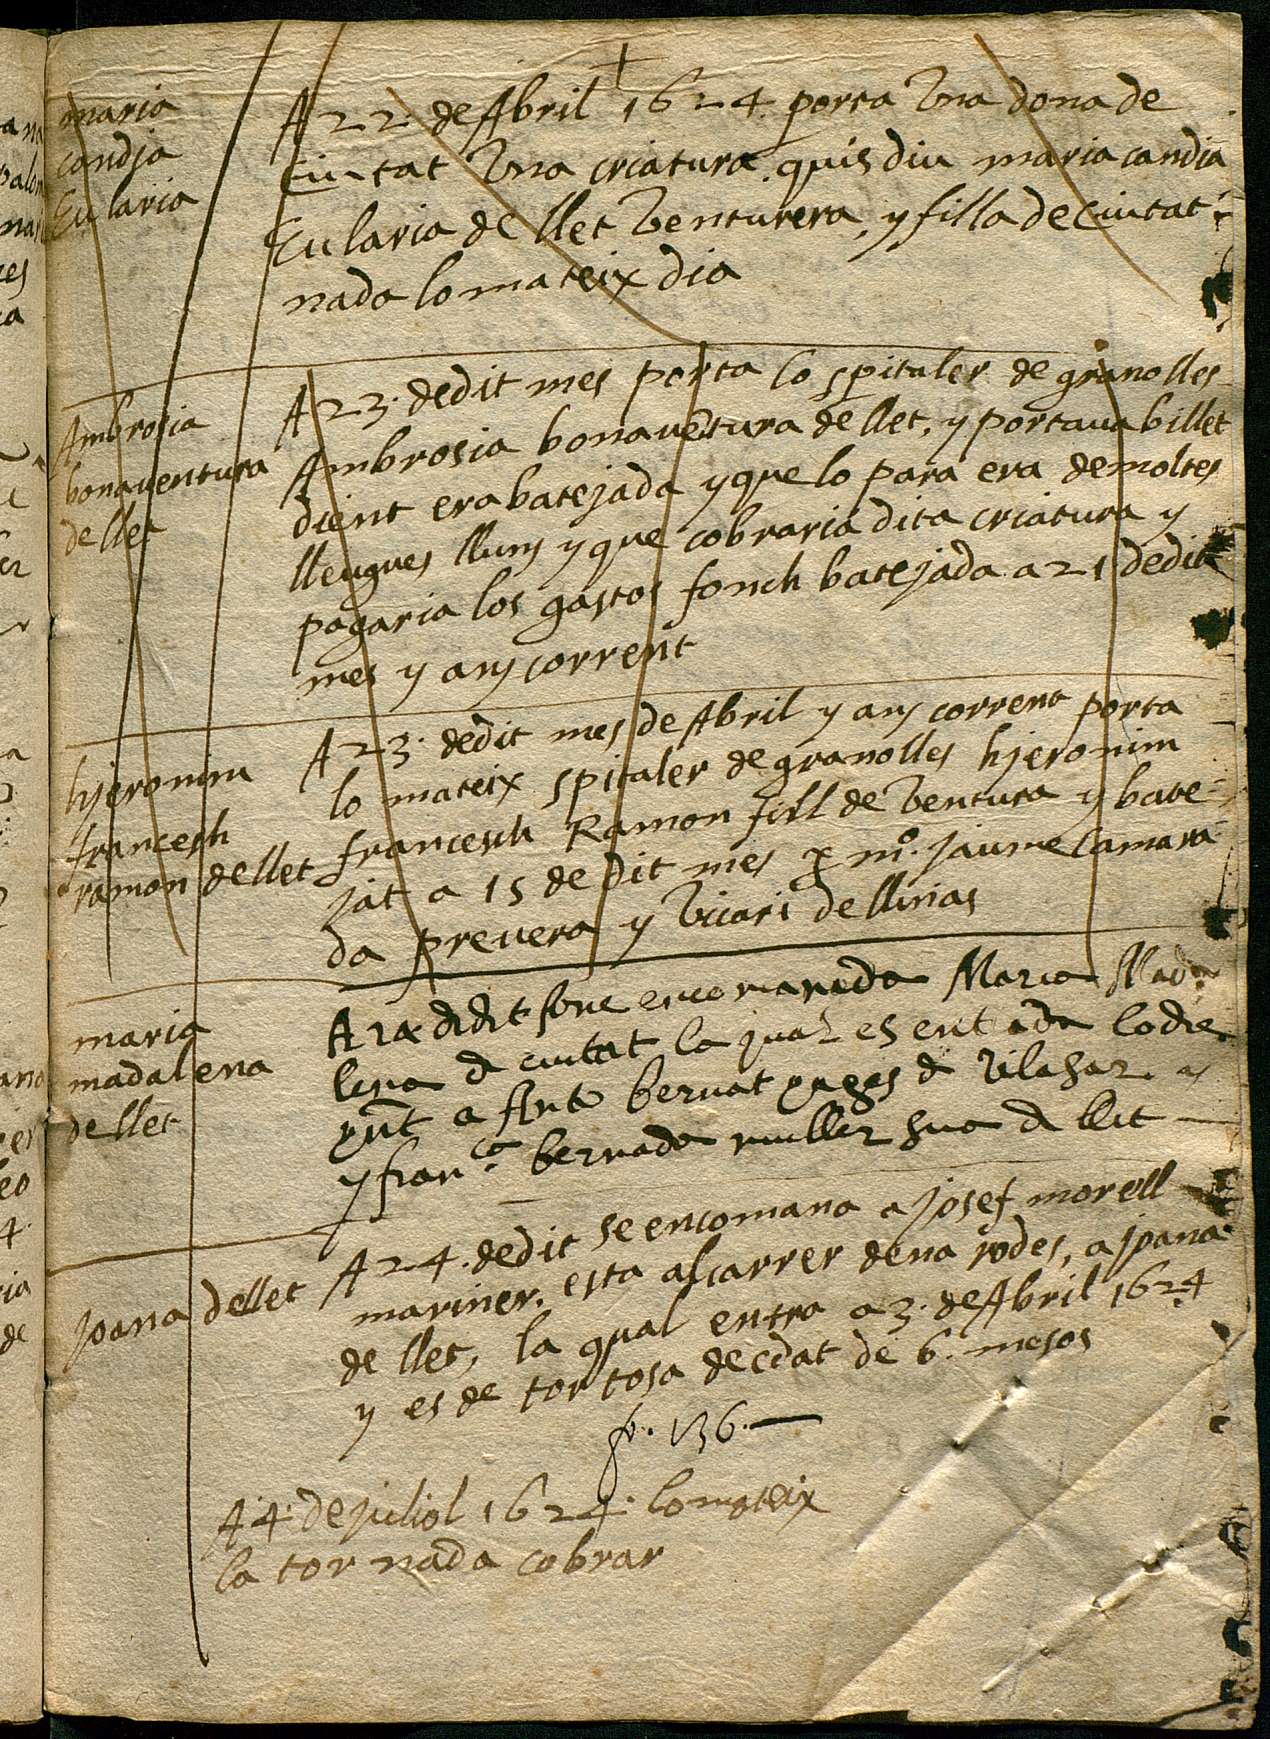 maria
candia
Eularia
A 22. de Abril 1624. porta Una dona de
Ciutat Una criatura. quis diu maria candia
Eularia de llet Venturera, y filla de Ciutat
nada lo mateix dia
Ambrosia
bonaventura
de llet
A 23. de dit mes porta lo spitaler de granolles
Ambrosia bonaventura de llet, y portava billet
dient era batejada y que lo para era de moltes
lleugues lluny y que cobraria dita criatura y
pagaria los gastos fonch batejada a 21 de dit
mes y any corrent
hjeronim
francesh
ramon de llet
A 23. de dit mes de Abril y any corrent porta
lo mateix spitaler de granolles hjeronim
francesch Ramon fill de Ventura y bate-
jat a 15 de dit mes p mº. jaume Camara
da prevera y Vicari de llinas
maria
madalena
de llet
A 24 d dit fonc encomanada Maria Mada
lena d ciutat la qual es entada lo die
pnt a Anto bernat pages d Vilasar
y franca. bernada muller sua d llet
joana de llet
A 24. de dit se encomana a josef morell
mariner. esta al carrer dena rodes, a joana
de llet, la qual entra a 3. de Abril 1624
y es de tortosa de edat de 6. mesos
fo. 136.
A 4. de juliol 1624. lo mateix
la tornada cobrar